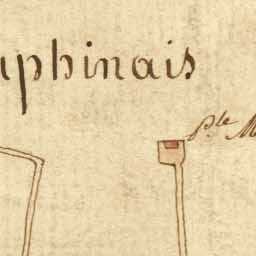 uphinais
Ple M